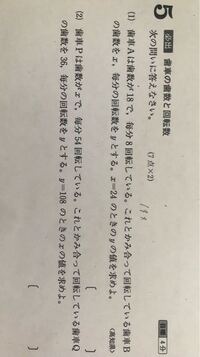 5 必出 歯車の歯数と回転数
目標 4分
次の問いに答えなさい。 (7点×2)
(1) 歯車Aは歯数が18で，毎分8回転している。これとかみ合って回転している歯車B
の歯数をx，毎分の回転数をyとする。x=24のときのyの値を求めよ。
〈高知県〉
[ ]
(2) 歯車Pは歯数がxで，毎分54回転している。これとかみ合って回転している歯車Q
の歯数を36，毎分の回転数をyとする。y=108のときのxの値を求めよ。
[ ]